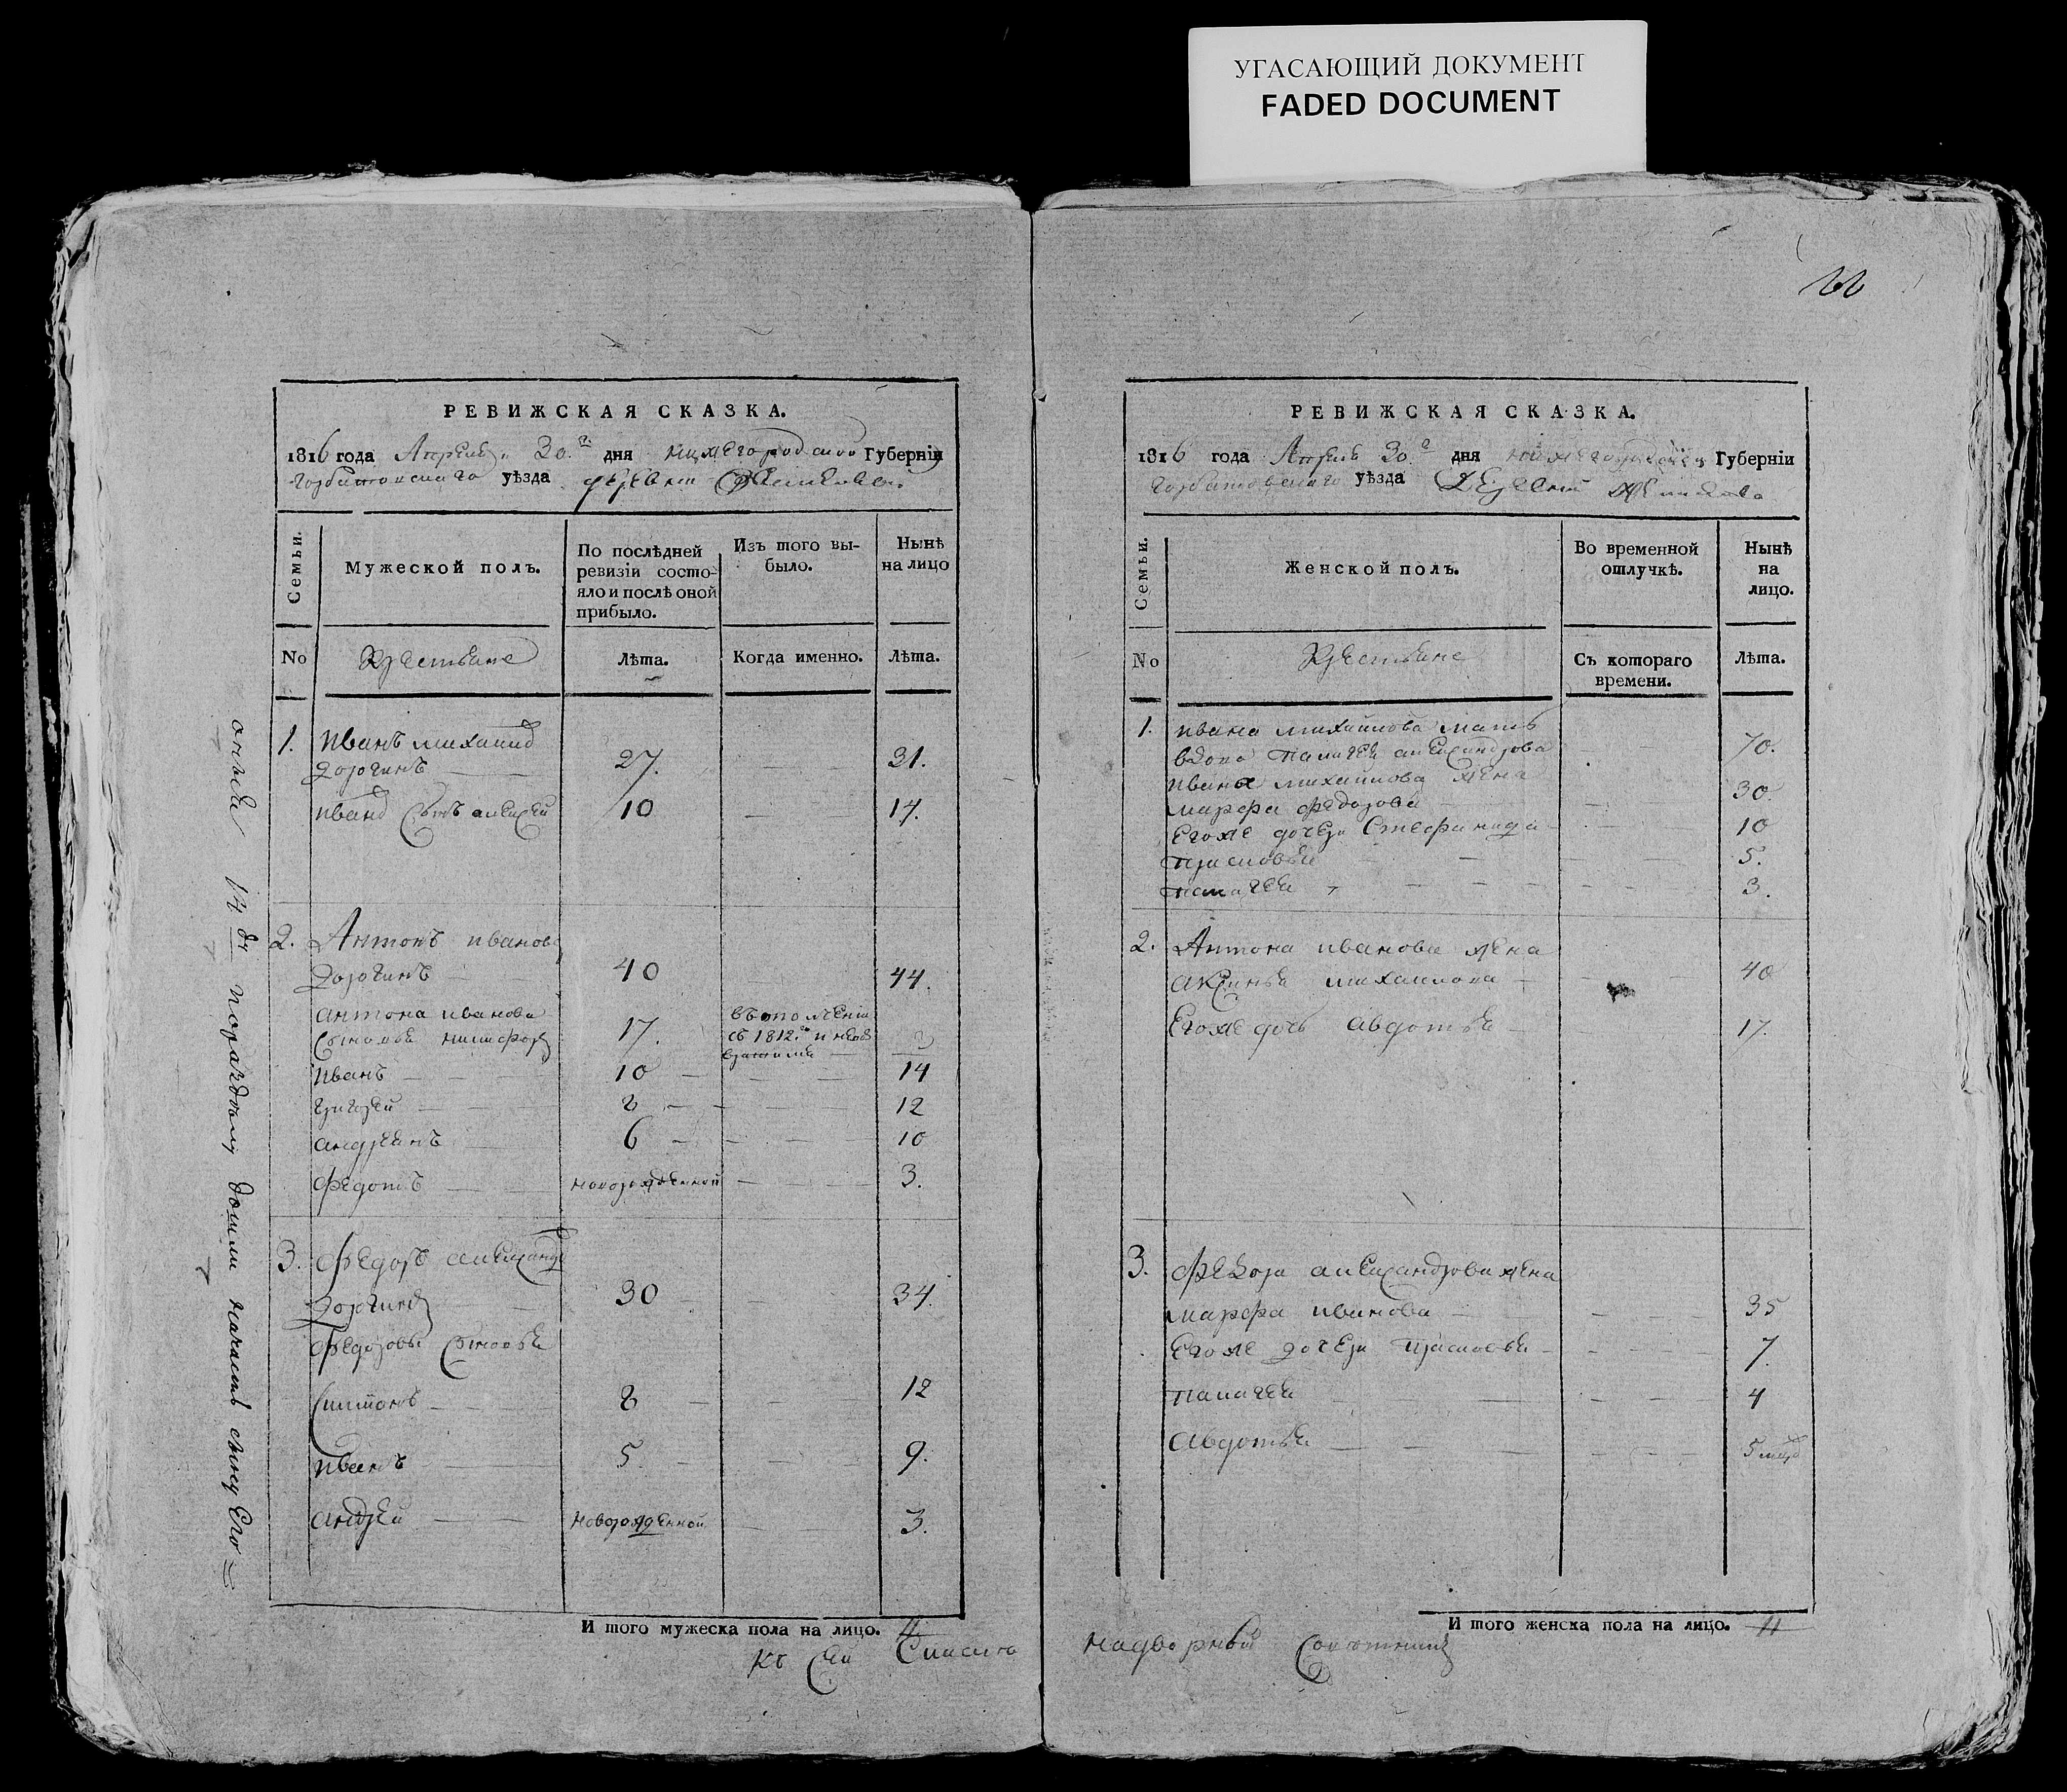 УГАСАЮЩИЙ ДОКУМЕНТ
FADED DOCUMENT
РЕВИЖСКАЯ СКАЗКА.
1816 года Апреля 30.го дня нижегородской Губерніи
горбатовскаго уѣзда деревни
Семьи.
Мужеской полъ.
По послѣдней ревизіи состо-
яло и послѣ оной
прибыло.
Изъ того вы-
было.
Нынѣ
на лицо
No
Крестьяне
Лѣта.
Когда именно.
Лѣта.
1. иванъ михаилов
дорогинъ 27. 31.
иванов сынъ алексей 10 14.
2. Антонъ иванов
Дорогинъ 40 44.
антона иванова
сыновья никифор 17. въ ополчении
съ 1812.го и не воз
вратился
иванъ 10 14
григорей 8 12
андреянъ 6 10
федотъ новорожденной 3.
3. федоръ александр
Дорогинъ 30 34.
федоровы сыновья
8 12
иванъ 5 9.
андрей новорожденной 3.
И того мужеска пола на лицо. 11
къ сей
РЕВИЖСКАЯ СКАЗКА.
1816 года Апреля 30го дня нижегородской Губерніи
горбатовскаго уѣзда Деревни
Семьи.
Женской полъ.
Во временной
отлучкѣ.
Нынѣ
на
лицо.
No
Крестьяне
Съ котораго
времени.
Лѣта.
1. ивана михайлова мать
вдова палагея александрова 70.
ивана михайлова жена
марфа федорова 30.
его же дочери Стефанида 10
прасковья 5.
палагея 3.
2. Антона иванова жена
аксинья михаилова 40
его же дочь авдотья 17.
3. федора александрова жена
марфа иванова 35
его же дочери прасковья 7.
палагея 4
авдотья 5 мцов
И того женска пола на лицо. 11
надворный советник